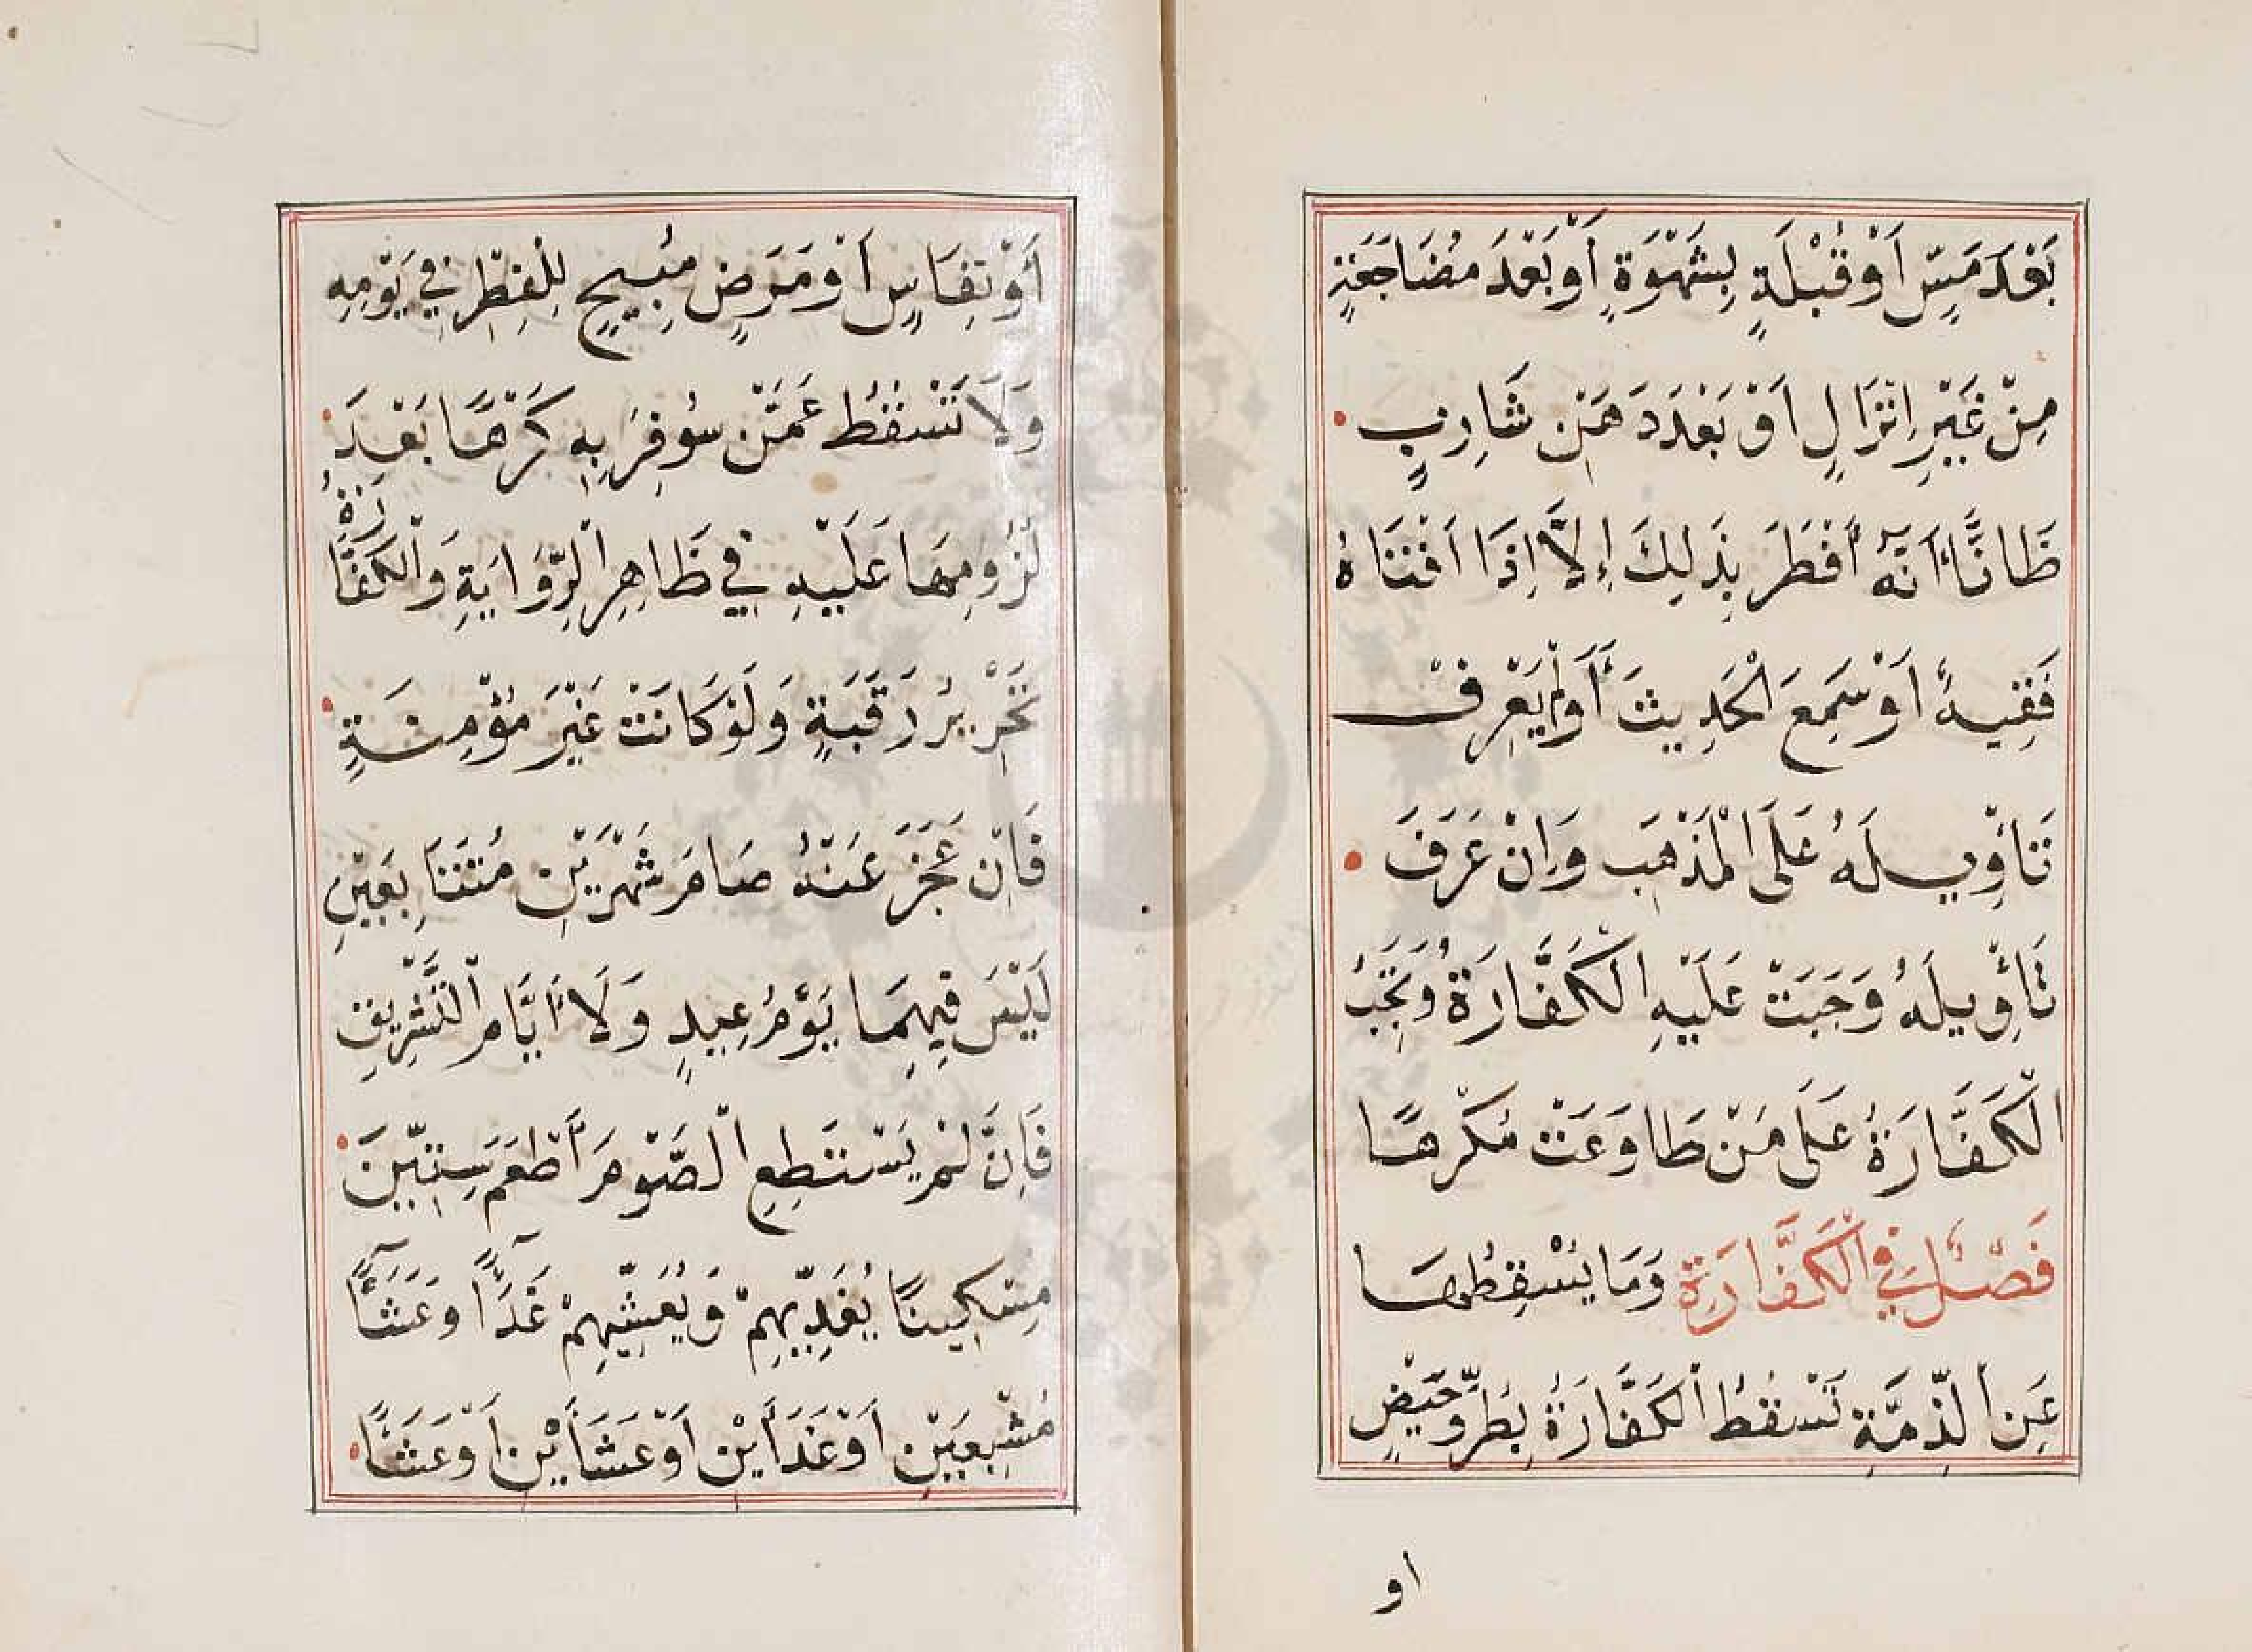 بَعْدَ مَسٍّ اَوْ قُبْلَةٍ بِشَهْوَةٍ أَوْ بَعْدَ مُضَاجَعَةٍ
مِنْ غَيْرِ اِنْزَالٍ اَوْ بَعْدَ دَهْنِ شَارِبٍ
ظَانًّا أَنَّهُ أَفْطَرَ بِذَلِكَ إِلَّا اِذَا اَفْتَاهُ
فَقِيهٌ اَوْ سَمِعَ الْحَدِيثَ أَوَلَمْ يَعْرِفْ
تَأْوِيلَهُ عَلَى الْمَذْهَبِ وَاِنْ عَرَفَ
تَأْوِيلَهُ وَجَبَتْ عَلَيْهِ الْكَفَّارَةُ وَتَجِبُ
الْكَفَّارَةُ عَلَى مَنْ طَاوَعَتْ مُكْرَهًا
فَصْلٌ فِي الْكَفَّارَةِ وَمَا يُسْقِطُهَا
عَنِ الذِّمَّةِ تَسْقُطُ الْكَفَّارَةُ بِطُرُوِّ حَيْضٍ
او
أَوْ نِفَاسٍ اَوْ مَرَضٍ مُبِيحٍ لِلْفِطْرِ فِي يَوْمِهِ
وَلَا تَسْقُطُ عَمَّنْ سُوفِرَ بِهِ كَرْهًا بَعْدَ
لُزُومِهَا عَلَيْهِ فِي ظَاهِرِ الرِّوَايَةِ وَالْكَفَّارَةُ
تَحْرِيرُ رَقَبَةٍ وَلَوْ كَانَتْ غَيْرَ مُؤْمِنَةٍ
فَاِنْ عَجَزَ عَنْهُ صَامَ شَهْرَيْنِ مُتَتَابِعَيْنِ
لَيْسَ فِيهِمَا يَوْمُ عِيدٍ وَلَا أَيَّامُ التَّشْرِيقِ
فَاِنْ لَمْ يَسْتَطِعِ الصَّوْمَ أَطْعَمَ سِتِّينَ
مِسْكِينًا يُغَدِّيهِمْ وَيُعَشِّيهِمْ غَدَآًٔ وَعَشَآًٔ
مُشْبِعَيْنِ اَوْ غَدَأَيْنِ اَوْ عَشَأَيْنِ اَوْ عَشَأً